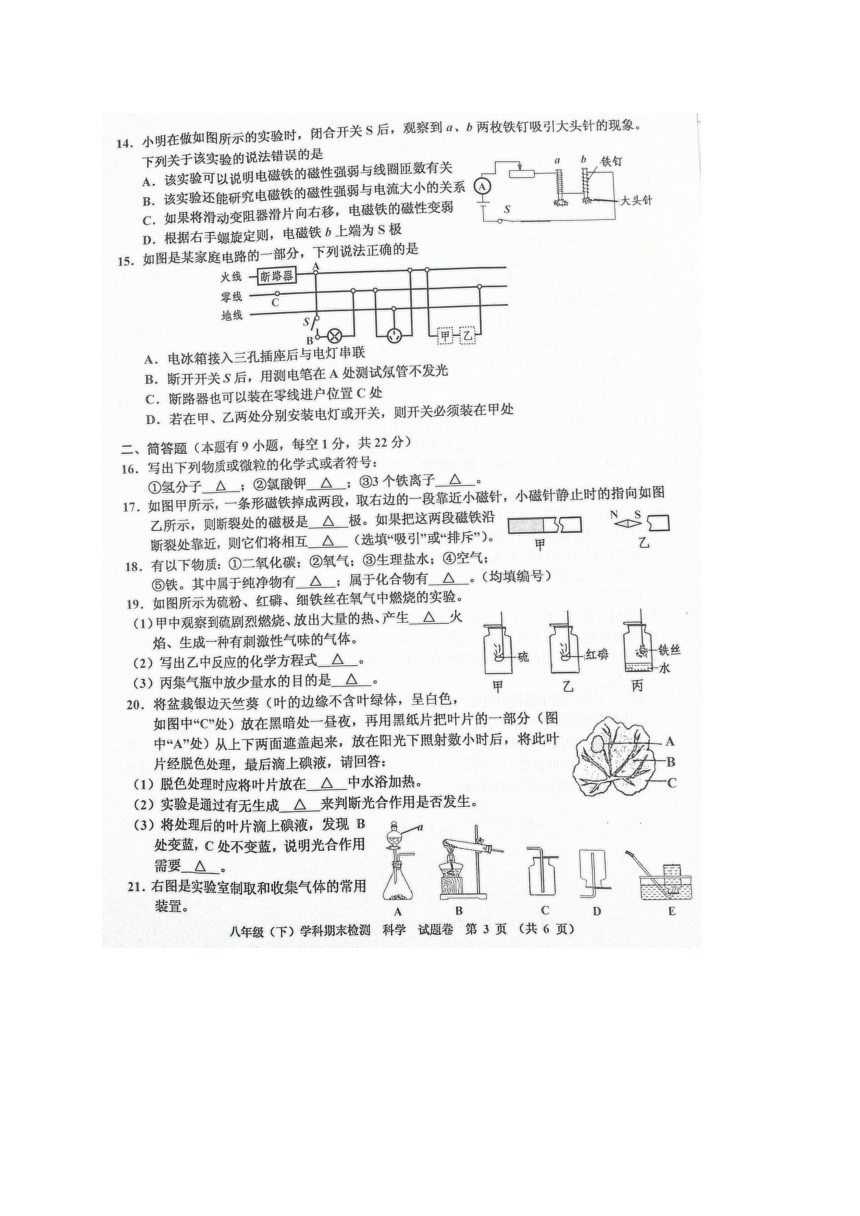 14．小明在做如图所示的实验时，闭合开关S后，观察到a、b两枚铁钉吸引大头针的现象。
下列关于该实验的说法错误的是
A．该实验可以说明电磁铁的磁性强弱与线圈匝数有关
B．该实验还能研究电磁铁的磁性强弱与电流大小的关系
C．如果将滑动变阻器滑片向右移，电磁铁的磁性变弱
D．根据右手螺旋定则，电磁铁b上端为S极
a b 铁钉
A
大头针
S
15．如图是某家庭电路的一部分，下列说法正确的是
火线 断路器 A
零线 C
地线
S
B 甲 乙
A．电冰箱接入三孔插座后与电灯串联
B．断开开关S后，用测电笔在A处测试氖管不发光
C．断路器也可以装在零线进户位置C处
D．若在甲、乙两处分别安装电灯或开关，则开关必须装在甲处
二、简答题（本题有9小题，每空1分，共22分）
16．写出下列物质或微粒的化学式或者符号：
①氢分子 △ ；②氯酸钾 △ ；③3个铁离子 △ 。
17．如图甲所示，一条形磁铁摔成两段，取右边的一段靠近小磁针，小磁针静止时的指向如图
乙所示，则断裂处的磁极是 △ 极。如果把这两段磁铁沿
断裂处靠近，则它们将相互 △ （选填“吸引”或“排斥”）。
N S
甲 乙
18．有以下物质：①二氧化碳；②氧气；③生理盐水；④空气；
⑤铁。其中属于纯净物有 △ ；属于化合物有 △ 。（均填编号）
19．如图所示为硫粉、红磷、细铁丝在氧气中燃烧的实验。
(1)甲中观察到硫剧烈燃烧、放出大量的热、产生 △ 火
焰、生成一种有刺激性气味的气体。
（2）写出乙中反应的化学方程式 △ 。
（3）丙集气瓶中放少量水的目的是 △ 。
硫 红磷 铁丝
水
甲 乙 丙
20．将盆栽银边天竺葵（叶的边缘不含叶绿体，呈白色，
如图中“C”处）放在黑暗处一昼夜，再用黑纸片把叶片的一部分（图
中“A”处）从上下两面遮盖起来，放在阳光下照射数小时后，将此叶
片经脱色处理，最后滴上碘液，请回答：
（1）脱色处理时应将叶片放在 △ 中水浴加热。
（2）实验是通过有无生成 △ 来判断光合作用是否发生。
（3）将处理后的叶片滴上碘液，发现 B
处变蓝，C处不变蓝，说明光合作用
需要 △ 。
A
B
C
21．右图是实验室制取和收集气体的常用
装置。
a
A B C D E
八年级（下）学科期末检测 科学 试题卷 第 3 页 （共 6 页）